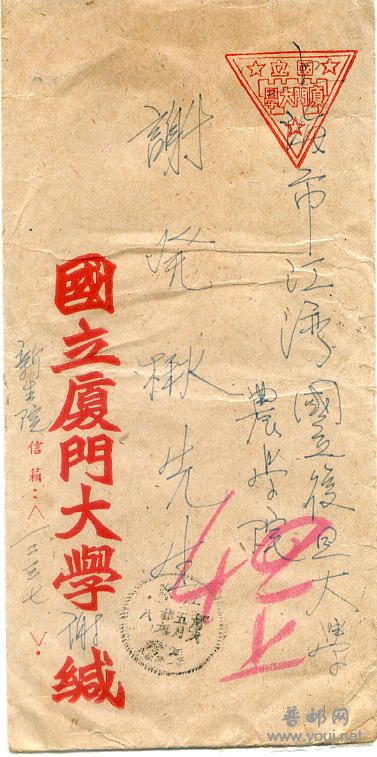 國立
厦門大學
上海市江湾國立復旦大學
農學院
謝発楸先生
國立厦門大學謝緘
新生院
信箱:〈一二三七〉.
42
上
普邮网
www.youi.net